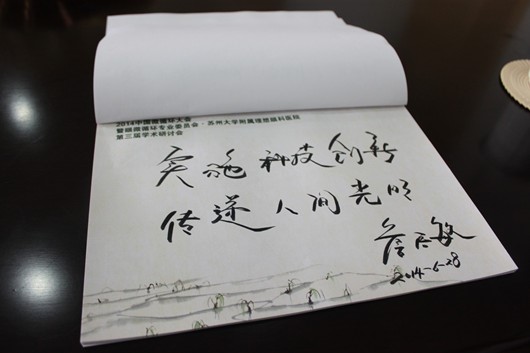 2014中国微循环大会
暨眼微循环专业委员会·苏州大学附属理想眼科医院
第三届学术研讨会
实施 科技创新
传递 人间光明
2014-6-28